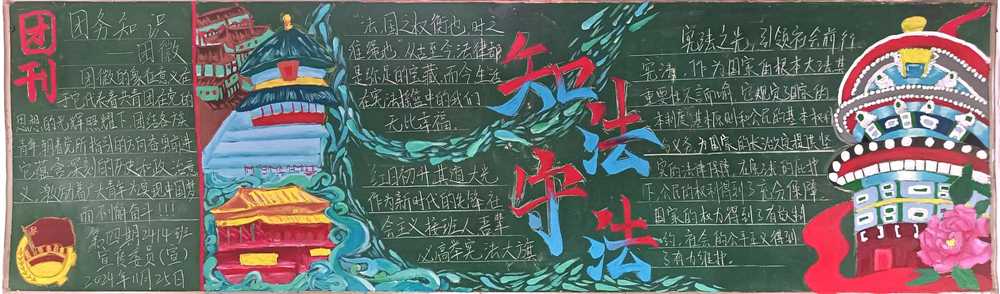 团刊
团务知识
——团徽
团徽的象征意义在
于它代表着共青团在党的
思想的光辉照耀下,团结各族
青年,朝着党所指引的方向奋勇前进
它蕴含深刻的历史和政治意
义,激励着广大青年为实现中国梦
而不懈奋斗!!!
第四期2414班
宣传委员(宣)
2024年11月25日
“法,国之权衡也,时之
准绳也”从古至今法律都
是
的宝藏,而今生活
在宪法摇篮中的我们
无比幸福.
红日初升其道大光
作为新时代的先锋在
会主义接班人吾辈
必高举宪法大旗
知法
守法
宪法之光,引领社会前行
宪法,作为国家的根本大法其
重要性不言而喻.它规定了国家的
本制度、基本原则和公民的基本权利
与义务,为国家的长治久安提供坚
实的法律保障.在宪法的庇护
下,公民的权利得到了充分保障
国家的权力得到了有效制
约,社会的公平正义得到
了有力维护.